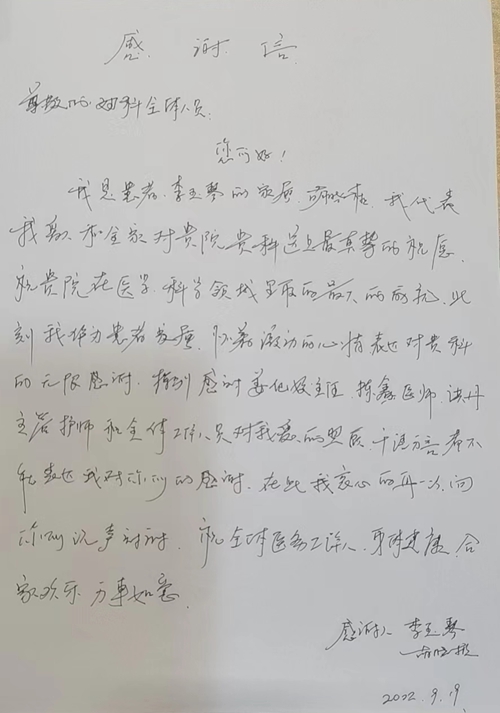 感谢信
尊敬的 科全体人员
您们好！
我是患者、李玉琴的家属、我代表
我 和全家对贵院贵科送上最真挚的祝愿
祝贵院在医学、科学领域里取的最大的成就、此
刻我作为患者家属、怀着激动的心情表达对贵科
的无限感谢、特别感谢姜 主任、 鑫医师、 丹
主管护师和全体工作人员对我 的照顾、千言万言都不
能表达我对你们的感谢、在此我衷心的再一次向
你们说声谢谢、祝全体医务工作人、身体健康、合
家欢乐、万事如意
感谢人 李玉琴
2022.9.19